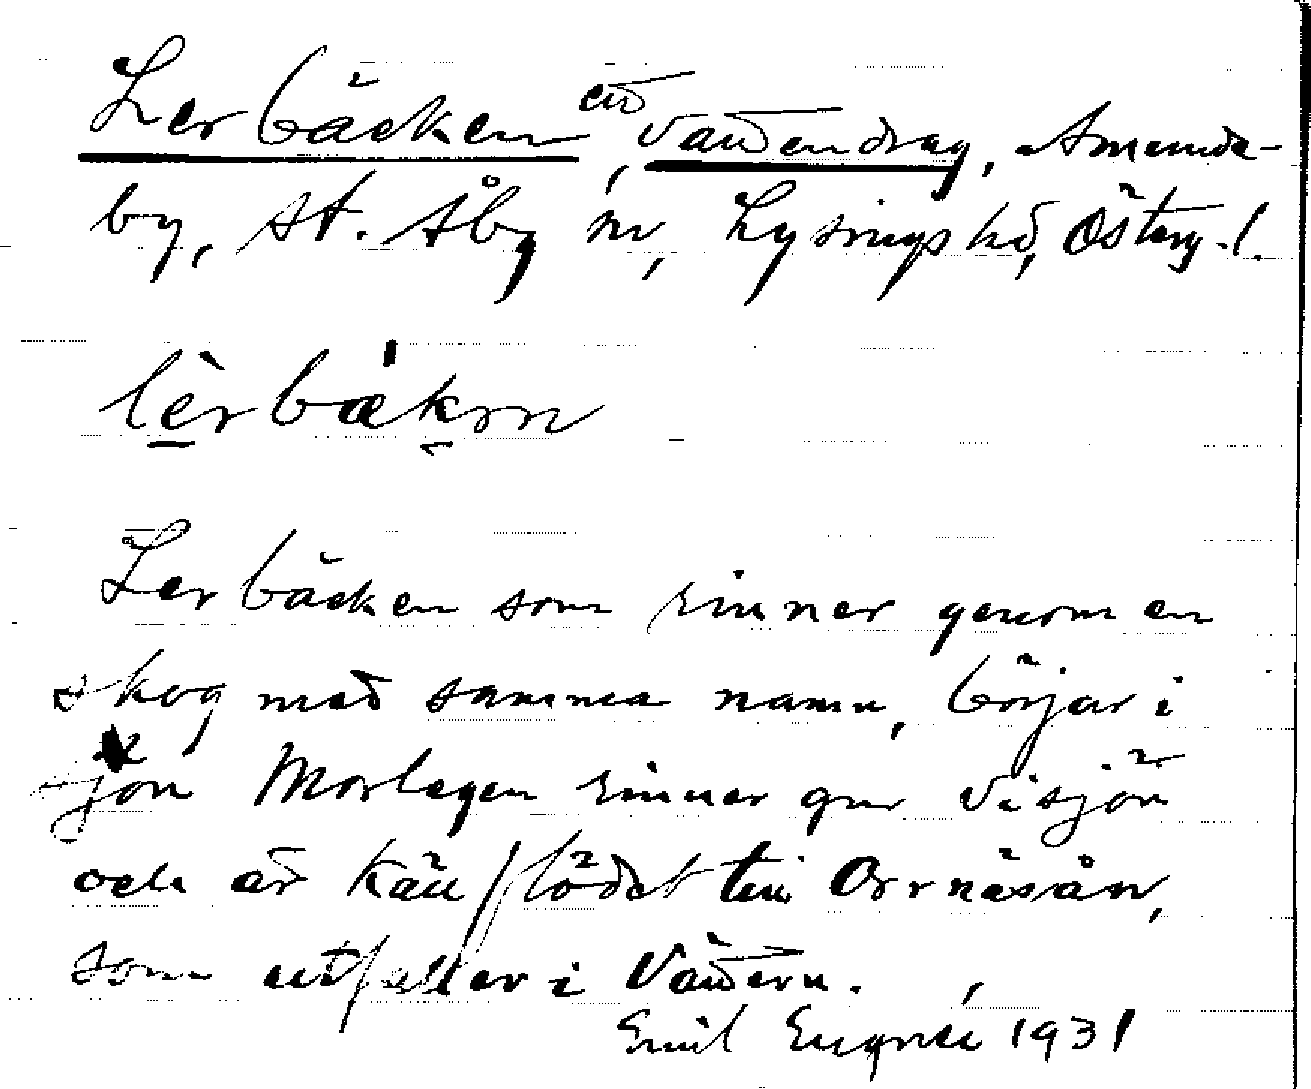 Lerbäcken, ett vattendrag, Ammunde-
by, St. Åby sn, Lysings hd, Österg.l.
lèrbækrn
Lerbäcken som rinner genom en
skog med samma namn, börjar i
sjön Morlegen rinner gm Visjön
och är källflödet till Orrnäsån,
som utfaller i Vättern.
Emil 1931